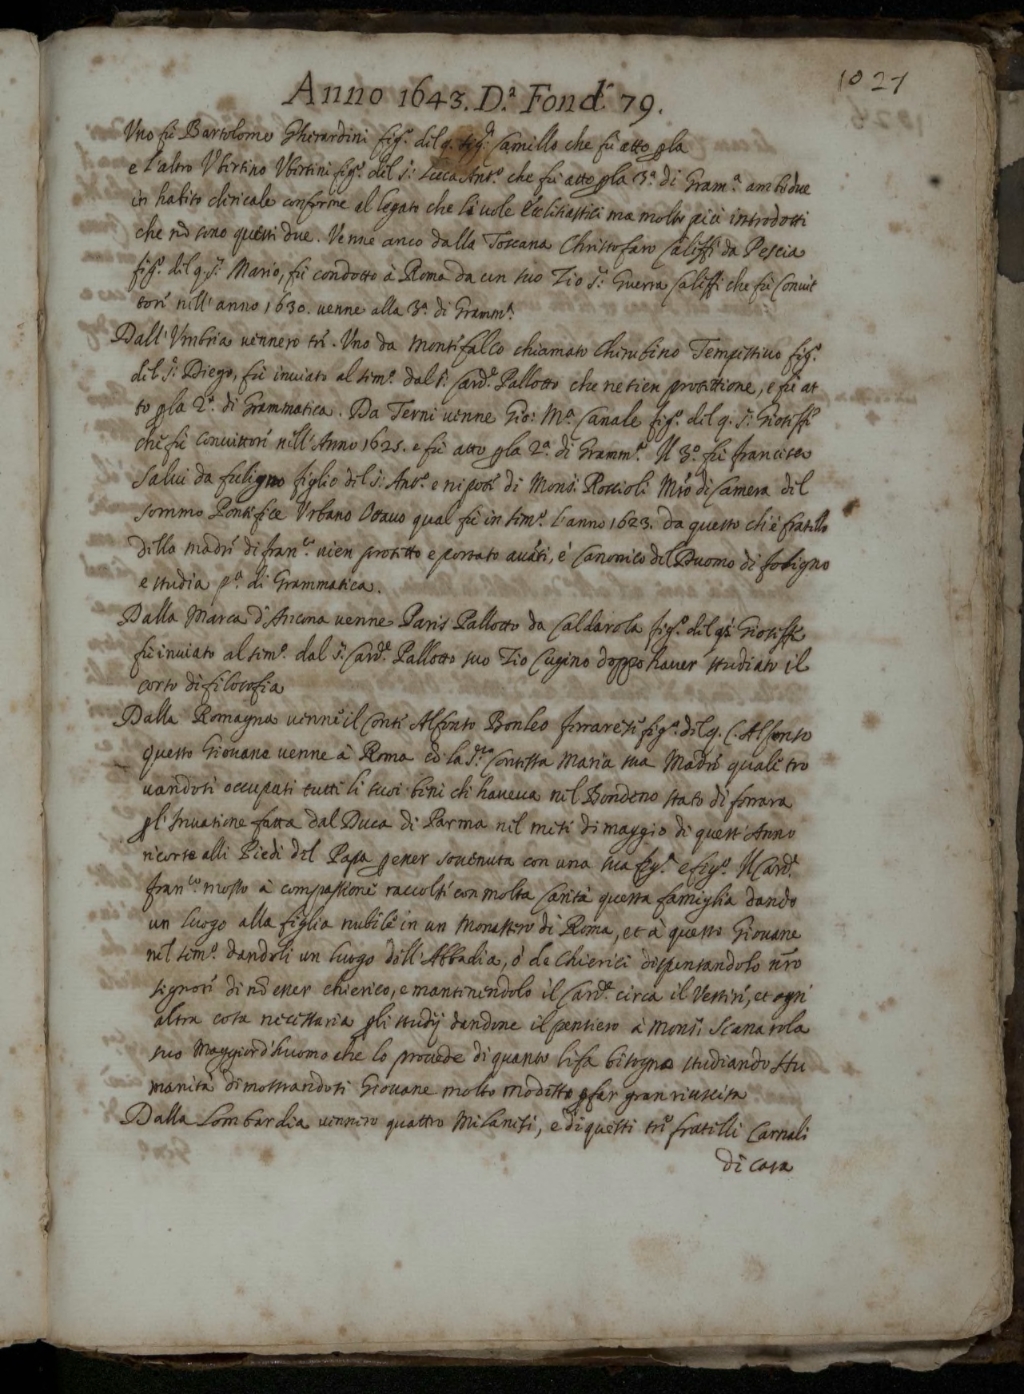 1027
Anno 1643. D.ª Fond.ᵉ 79.
Uno fù Bartolomeo Gherardini fig.º del q. Sig.ʳ Camillo che fù atto p la
e l'altro Ubertino Ubertini fig.º del S.ʳ Luca Ant.º che fù atto p la 3.ª di Gram.ª ambidue
in habito clericale conforme al legato che li vole Ecclesiastici ma molto più introdotti
che nō sono questi due. Venne anco dalla Toscana Christofaro Califfi da Pescia
fig.º del q. S.ʳ Mario, fù condotto à Roma da un suo Zio S.ʳ Guerra Califfi che fù Convit
tore nell'anno 1630. venne alla 3.ª di Gramm.ª
Dall'Umbria vennero trè. Uno da Montefalco chiamato Cherubino Tempestivo fig.º
del S.ʳ Diego, fù inviato al Sem.º dal S.ʳ Card.ˡᵉ Pallotto che ne tien protettione, e fù at
to p la 2.ª di Grammatica. Da Terni venne Gio: M.ª Canale fig.º del q. S.ʳ Gioseffe
che fù Convittore nell'Anno 1625. e fù atto p la 2.ª di Gramm.ª Il 3.º fù Francesco
Salvi da Fuligno figlio del S.ʳ Ant.º e nipote di Mons.ʳ Roscioli Mrō di Camera del
Sommo Pontefice Urbano Ottavo qual fù in Sem.º l'anno 1623. da questo ch'è fratello
della madre di Fran.ᶜᵒ vien protetto e portato avāti, è Canonico del Duomo di Foligno
e studia p.ª di Grammatica.
Dalla Marca d'Ancona venne Paris Pallotto da Caldarola fig.º del q. S.ʳ Gioseffe
fù inviato al Sem.º dal S.ʳ Card.ˡᵉ Pallotto suo Zio Cugino doppo haver studiato il
corso di filosofia
Dalla Romagna venne il Conte Alfonso Bonleo ferrarese fig.º del q. C. Alfonso
questo Giovane venne à Roma cō la S.ʳᵃ Contessa Maria sua Madre quale tro
vandosi occupati tutti li suoi beni che haveva nel Bondeno stato di ferrara
p l'invatione fatta dal Duca di Parma nel mese di maggio di quest'Anno
ricorse alli Piedi del Papa p esser sovenuta con una sua fig.ª e fig.º Il Card.ˡᵉ
Fran.ᶜᵒ mosso à compassione raccolse con molta Carità questa famiglia dando
un luogo alla figlia nubile in un Monastero di Roma, et à questo Giovane
nel Sem.º dandoli un luogo dell'Abbadia, ò de Chierici dispensandolo nrō
Signore di nō esser chierico, e mantenendolo il Card.ˡᵉ circa il Vestire, et ogni
altra cosa necessaria p li studij dandone il pensiero à Mons.ʳ Scanarola
suo Maggiord'huomo che lo provede di quanto li fa bisogno studiando Hu
manità dimostrandosi Giovane molto modesto p far gran riuscita
Dalla Lombardia vennero quattro Milanesi, e di questi trè fratelli Carnali
di casa